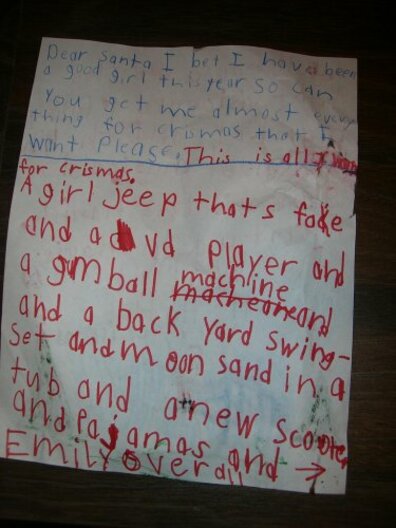 Dear Santa I bet I have been
a good girl this year so can
you get me almost every
thing for crismas that I
want please. This is all I want
for crismas.
A girl jeep thats fake
and a dvd player and
a gumball machline
macheare and
and a back yard swing-
set and moon sand in a
tub and a new scooter
and pajamas and →
Emily over all